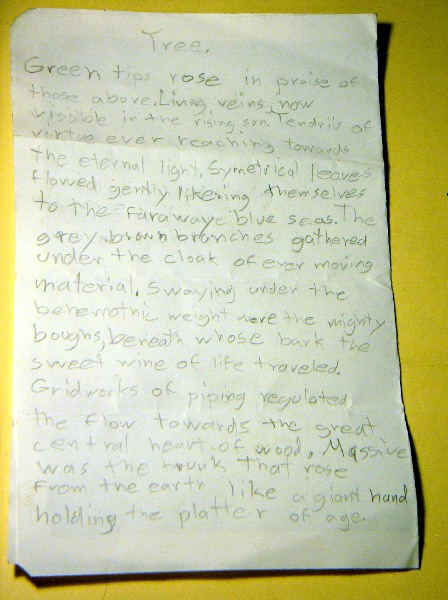 Tree.
Green tips rose in praise of
those above. Living veins, now
visible in the rising sun. Tendrils of
virtue ever reaching towards
the eternal light. Symetrical leaves
flowed gently likening themselves
to the farawaye blue seas. The
grey-brown branches gathered
under the cloak of ever moving
material. Swaying under the
behemothic weight were the mighty
boughs, beneath whose bark the
sweet wine of life traveled.
Gridworks of piping regulated
the flow towards the great
central heart of wood. Massive
was the trunk that rose
from the earth like a giant hand
holding the platter of age.